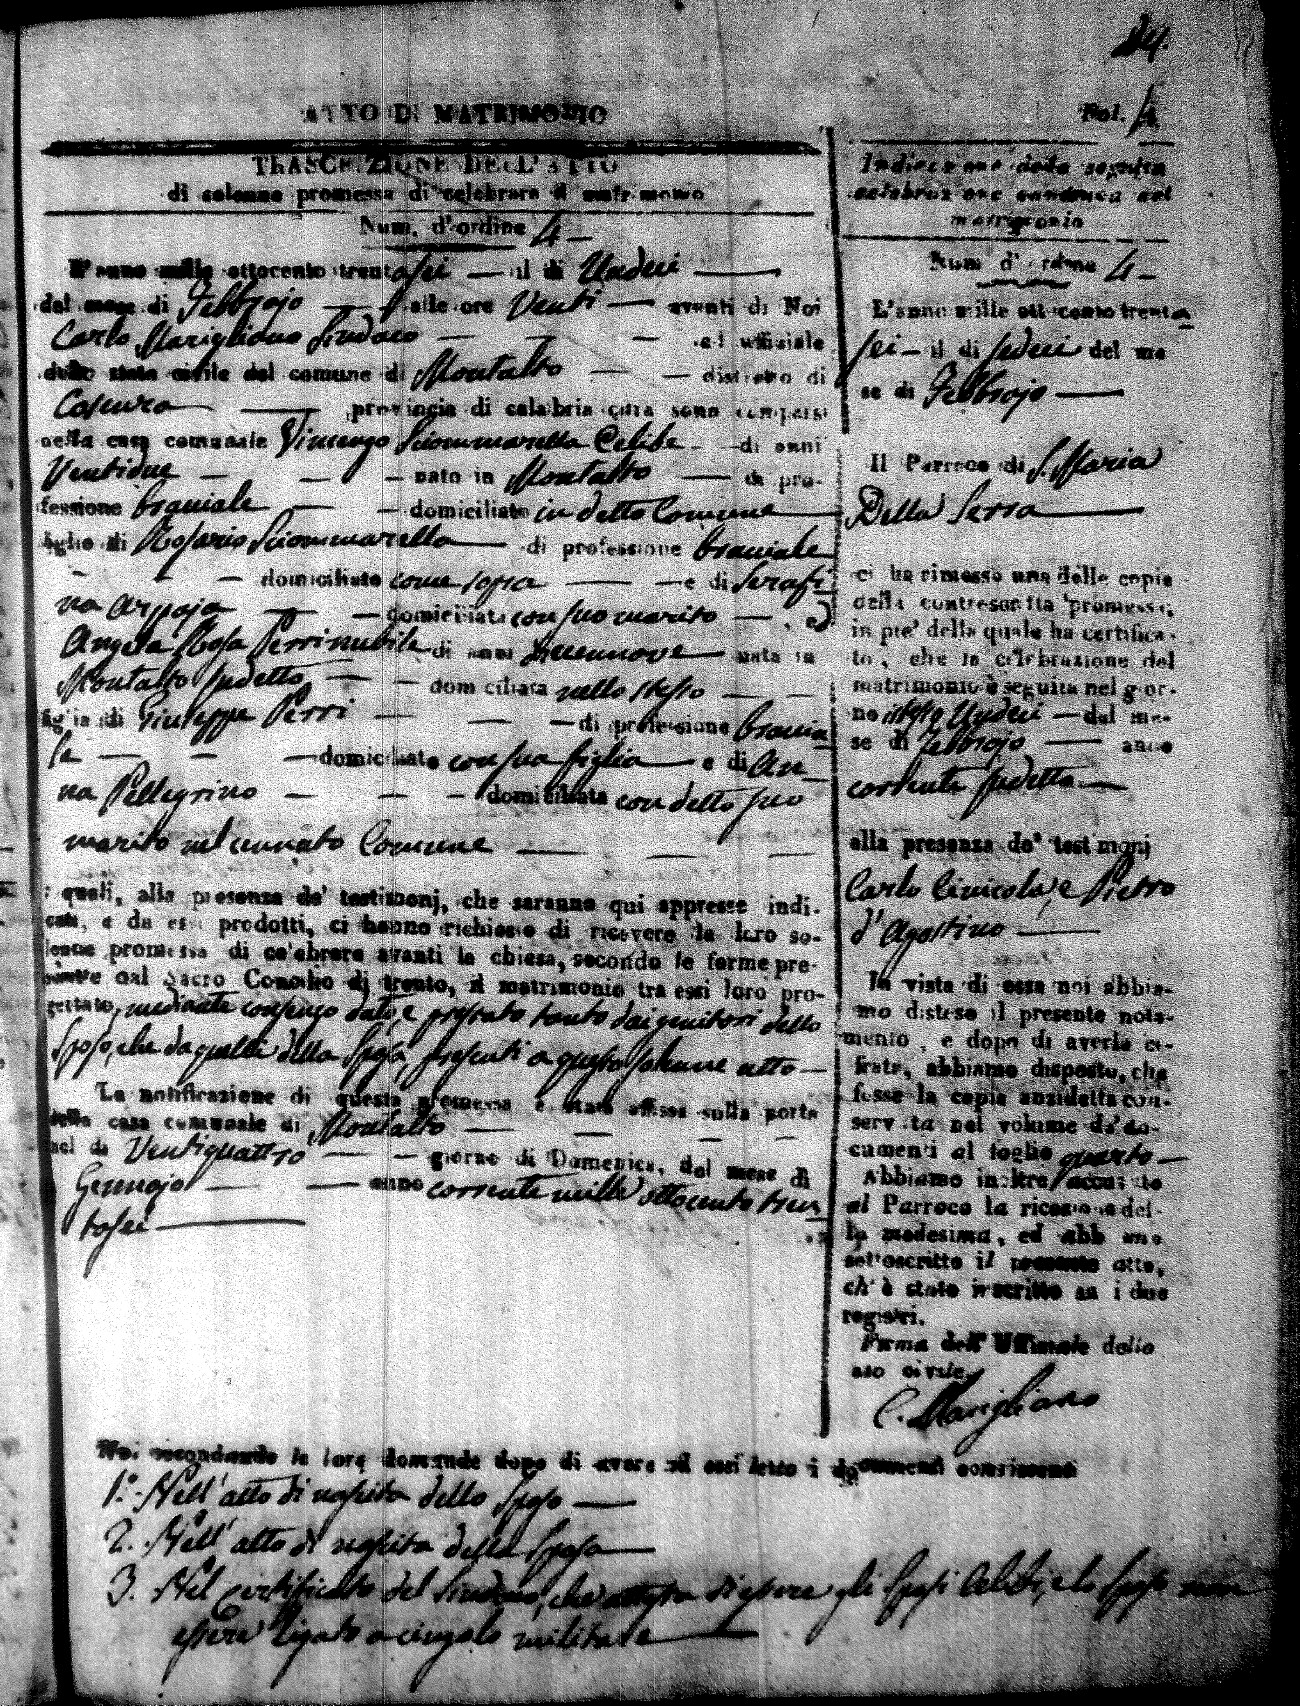 24.
ATTO DI MATRIMONIO
Fol. 4.
TRASCRIZIONE DELL'ATTO
di solenne promessa di celebrare il matrimonio
Num. d'ordine 4
L'anno mille ottocento trentasei il di Undeci
del mese di Febbrajo alle ore Venti avanti di Noi
Carlo Marigliano Sindaco ed uffiziale
dello stato civile del comune di Montalto distretto di
Cosenza provincia di calabria citra sono comparsi
nella casa comunale Vincenzo Sciommarella Celibe di anni
Ventidue nato in Montalto di pro-
fessione braciale domiciliato in detto Comune
figlio di Rosario Sciommarella di professione braciale
domiciliato come sopra e di Serafi
na Arpaja domiciliata con suo marito , ed
Angela Rosa Perri nubile di anni Diecennove nata in
Montalto sudetto domiciliata nello stesso
figlia di Giuseppe Perri di professione bracia
le domiciliato con sua figlia e di An
na Pellegrino domiciliata con detto suo
marito nel cennato Comune
i quali, alla presenza de' testimonj, che saranno qui appresso indi-
cati, e da essi prodotti, ci hanno richiesto di ricevere la loro so-
lenne promessa di celebrare avanti la chiesa, secondo le forme pre-
scritte dal Sacro Concilio di trento, il matrimonio tra essi loro pro-
gettato, mediante consenzo dato, e prestato tanto dai genitori dello
Sposo, che da quelli della Sposa, presenti a questo solenne atto
La notificazione di questa promessa è stata affissa sulla porta
della casa comunale di Montalto
nel di Ventiquattro giorno di Domenica, del mese di
Gennajo anno corrente mille ottocento tren
tasei
Indicazione della seguita
celebrazione canonica del
matrimonio
Num d'ordine 4
L'anno mille ottocento trenta
sei il di sedeci del me
se di Febbrajo
Il Parroco di S. Maria
Della Serra
ci ha rimesso una delle copie
della controscritta promessa,
in pie' della quale ha certifica-
to, che la celebrazione del
matrimonio è seguita nel gior-
no istesso Undeci del me-
se di Febbrajo anno
corrente sudetto
alla presenza de' testimonj
Carlo Cinicola, e Pietro
d'Agostino
In vista di essa noi abbia-
mo disteso il presente nota-
mento, e dopo di averla ci-
frata, abbiamo disposto, che
fosse la copia anzidetta con-
servata nel volume de' do-
cumenti al foglio quarto
Abbiamo inoltre accusato
al Parroco la ricezione del-
la medesima, ed abbiamo
sottoscritto il presente atto,
ch'è stato inscritto su i due
registri.
Firma dell' Uffiziale dello
stato civile
C. Marigliano
Noi secondando le loro domande dopo di avere ad essi letto i documenti consistenti
1.° Nell'atto di nascita dello Sposo
2. Nell'atto di nascita della Sposa
3. Nel Certificato del Sindaco, che attesta di essere gli Sposi Celibi, e lo Sposo non
essere ligato a cingolo militare